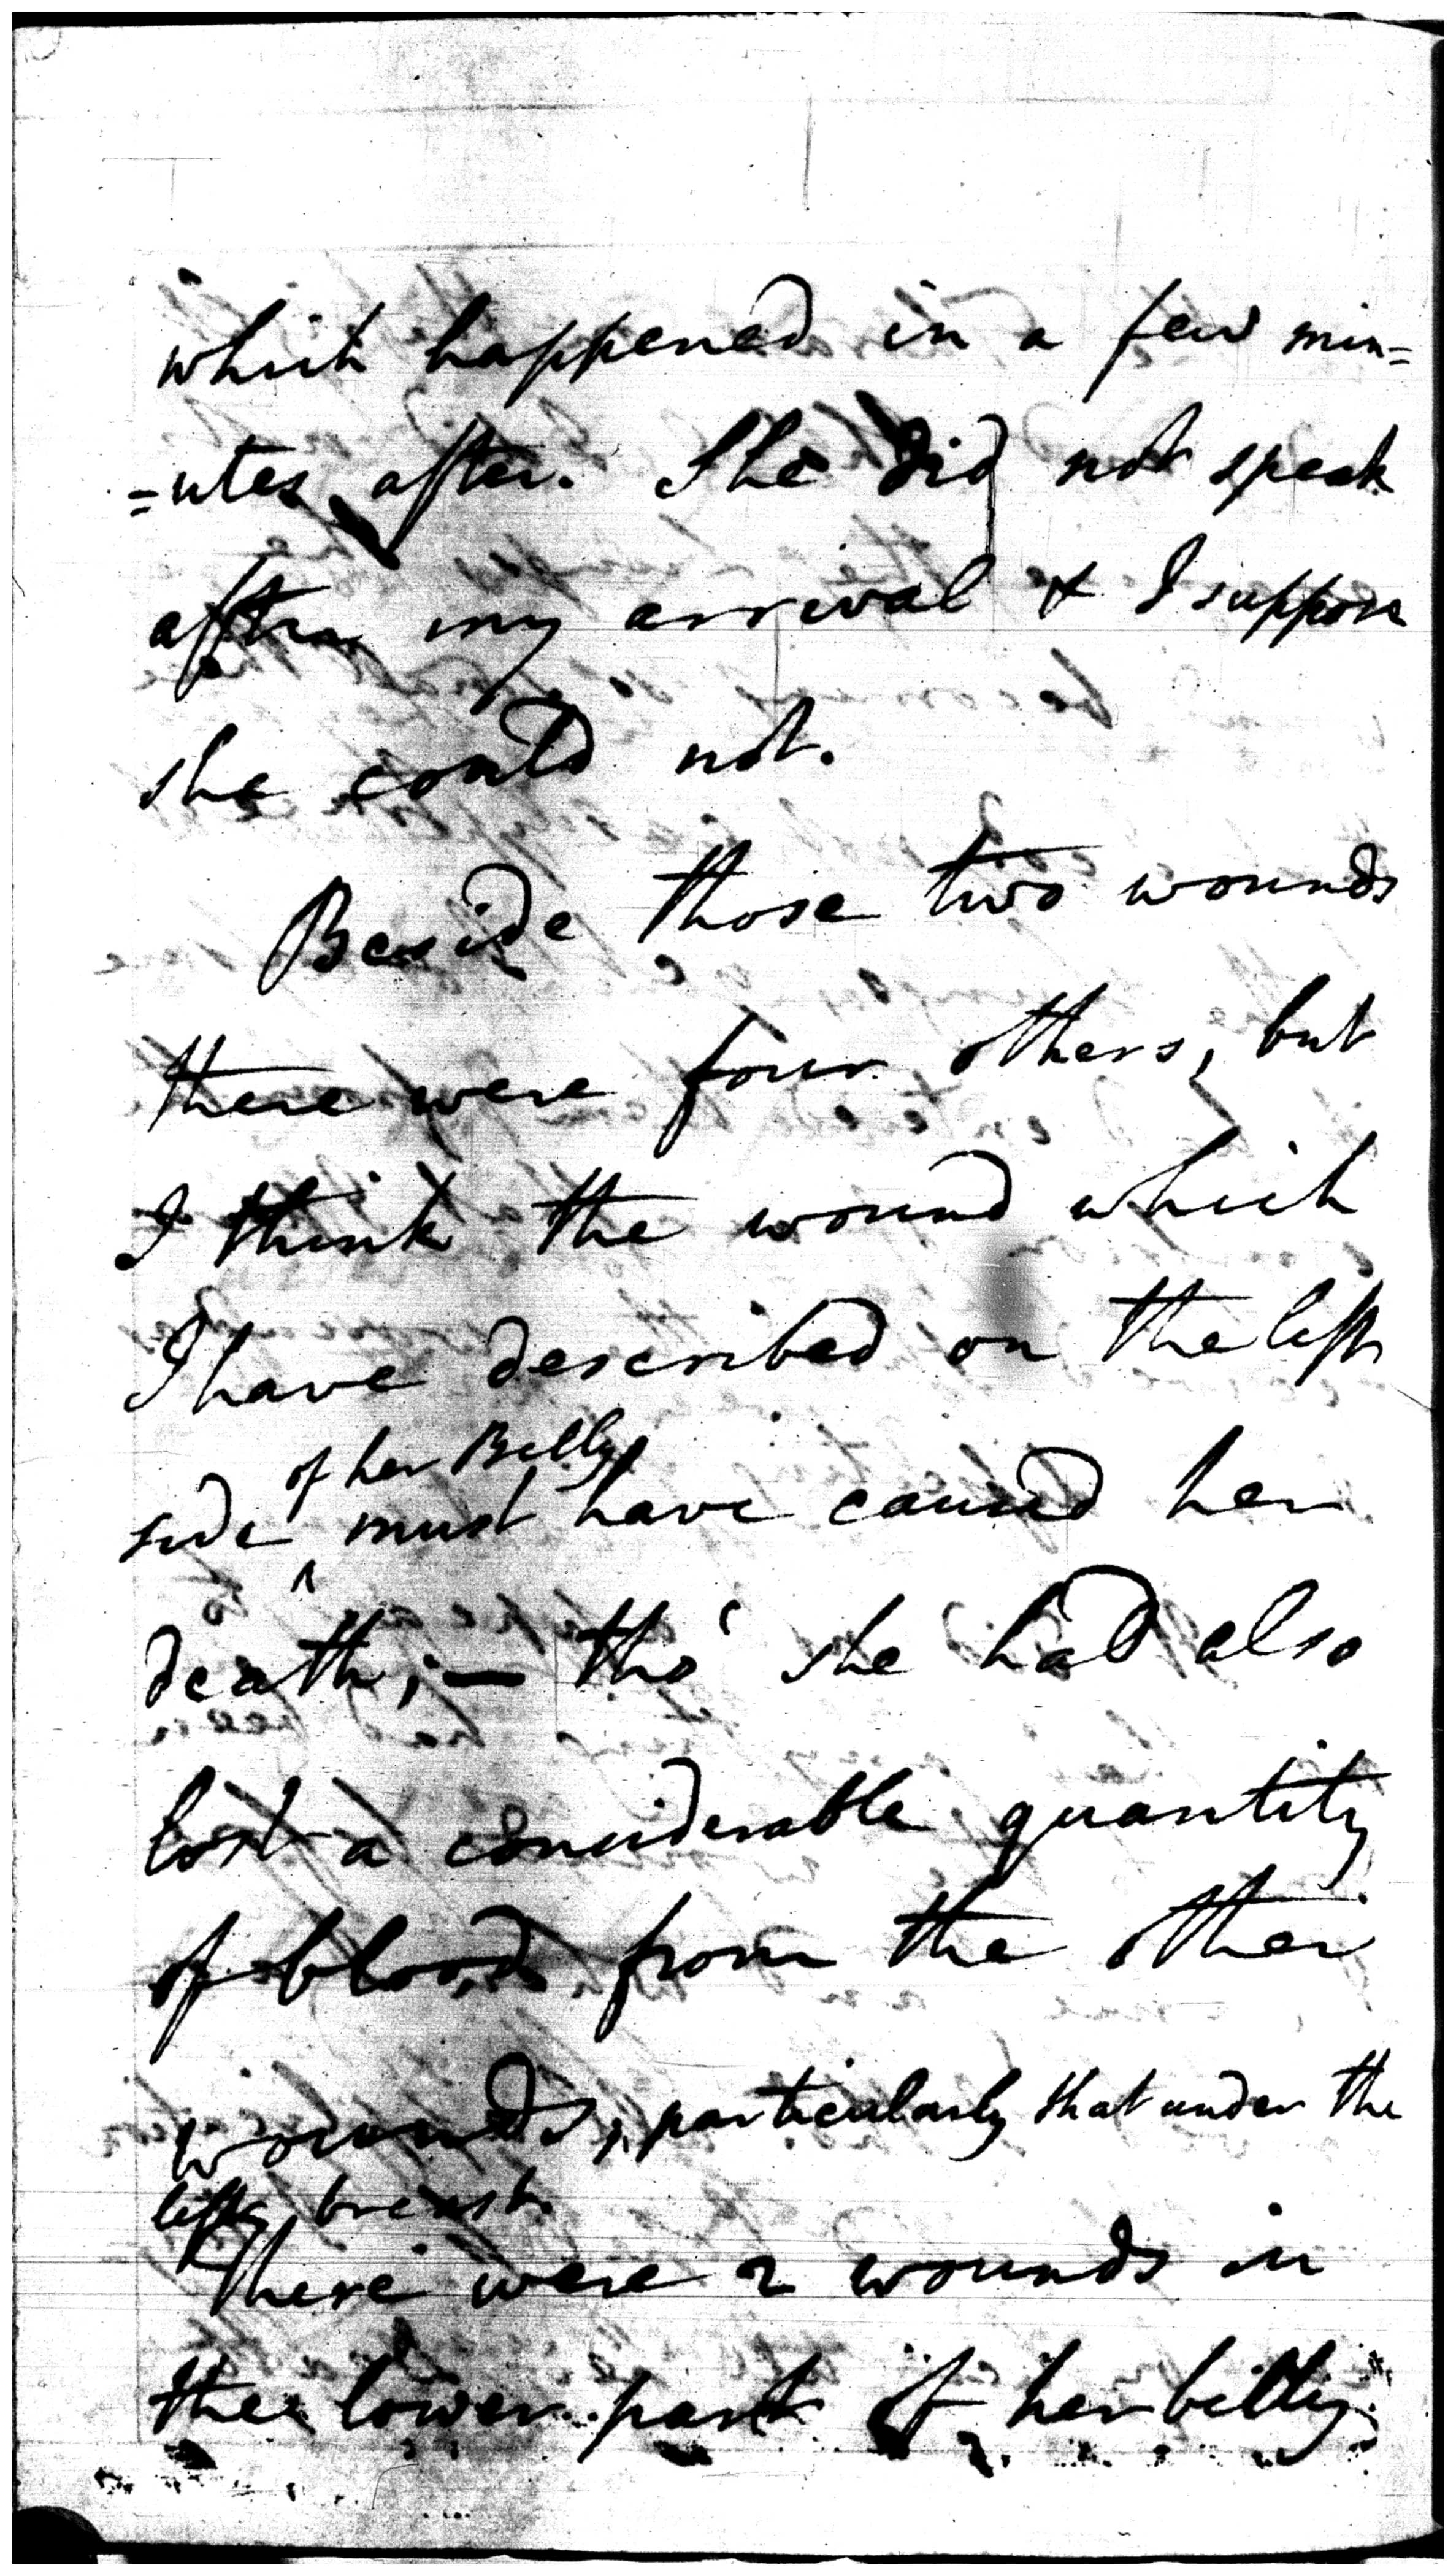 which happened in a few min=
=utes after. She did not speak
after my arrival & I suppose
she could not.
Beside those two wounds
there were four others, but
I think the wound which
I have described on the left
of her Belly
side ^ must have caused her
death; — tho' she had also
lost a considerable quantity
of blood from the other
wounds, particularly that under the
left breast.
There were 2 wounds in
the lower part of her belly